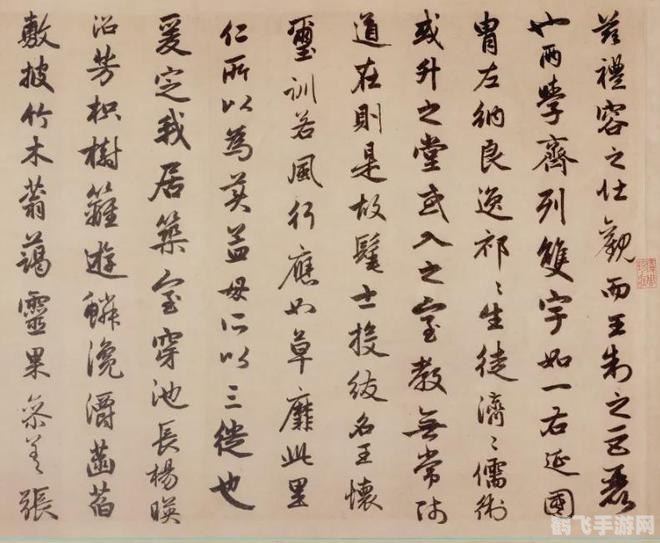 茲禮容之壯觀而王制之巨麗
也兩學齊列雙宇如一右延國
胄左納良逸祁〻生徒濟〻儒術
或升之堂或入之室教無常師
道在則是故髦士投紱名王懷
璽訓若風行應如草靡此里
仁所以為美孟母所以三徙也
爰定我居築室穿池長楊暎
沼芳枳樹籬遊鱗瀺灂菡萏
敷披竹木蓊藹靈果參差張
鹤飞手游网